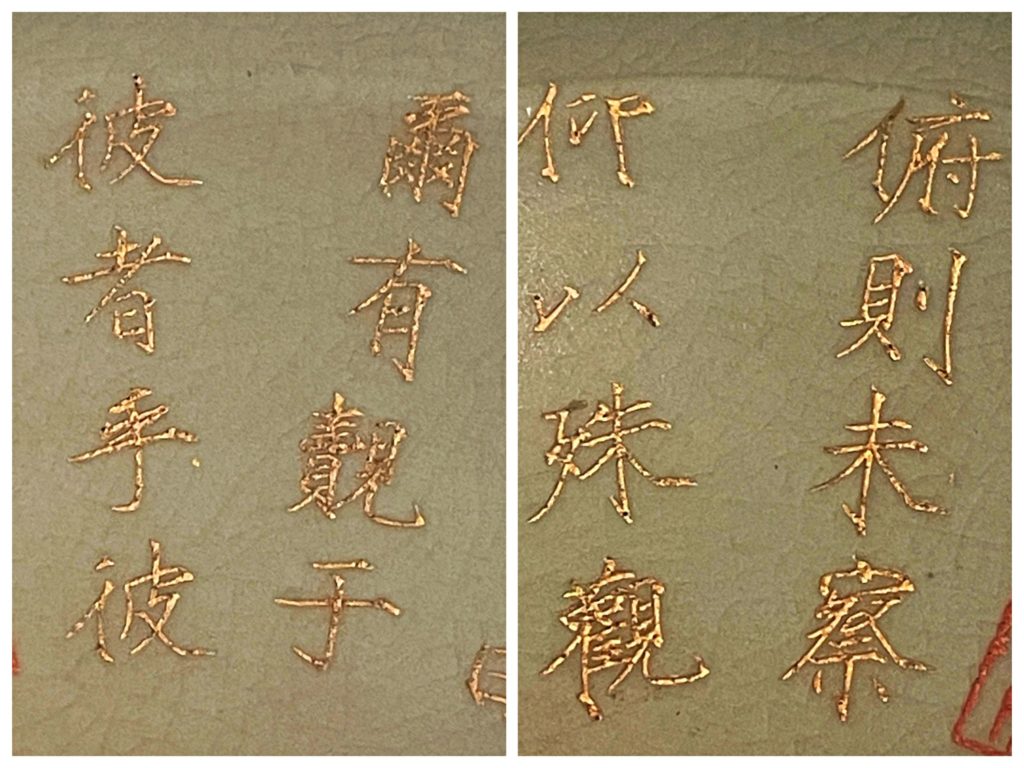 俯則未察
仰以殊觀
爾有覿于
彼者乎彼